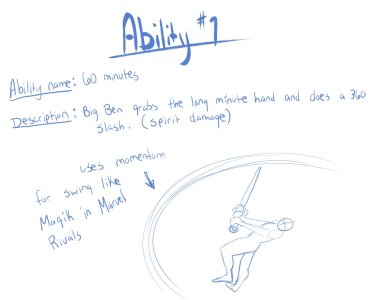 Ability #1
Ability name: 60 minutes
Description: Big Ben grabs the long minute hand and does a 360
slash. (spirit damage)
uses momentum
for swing like
Magik in Marvel
Rivals